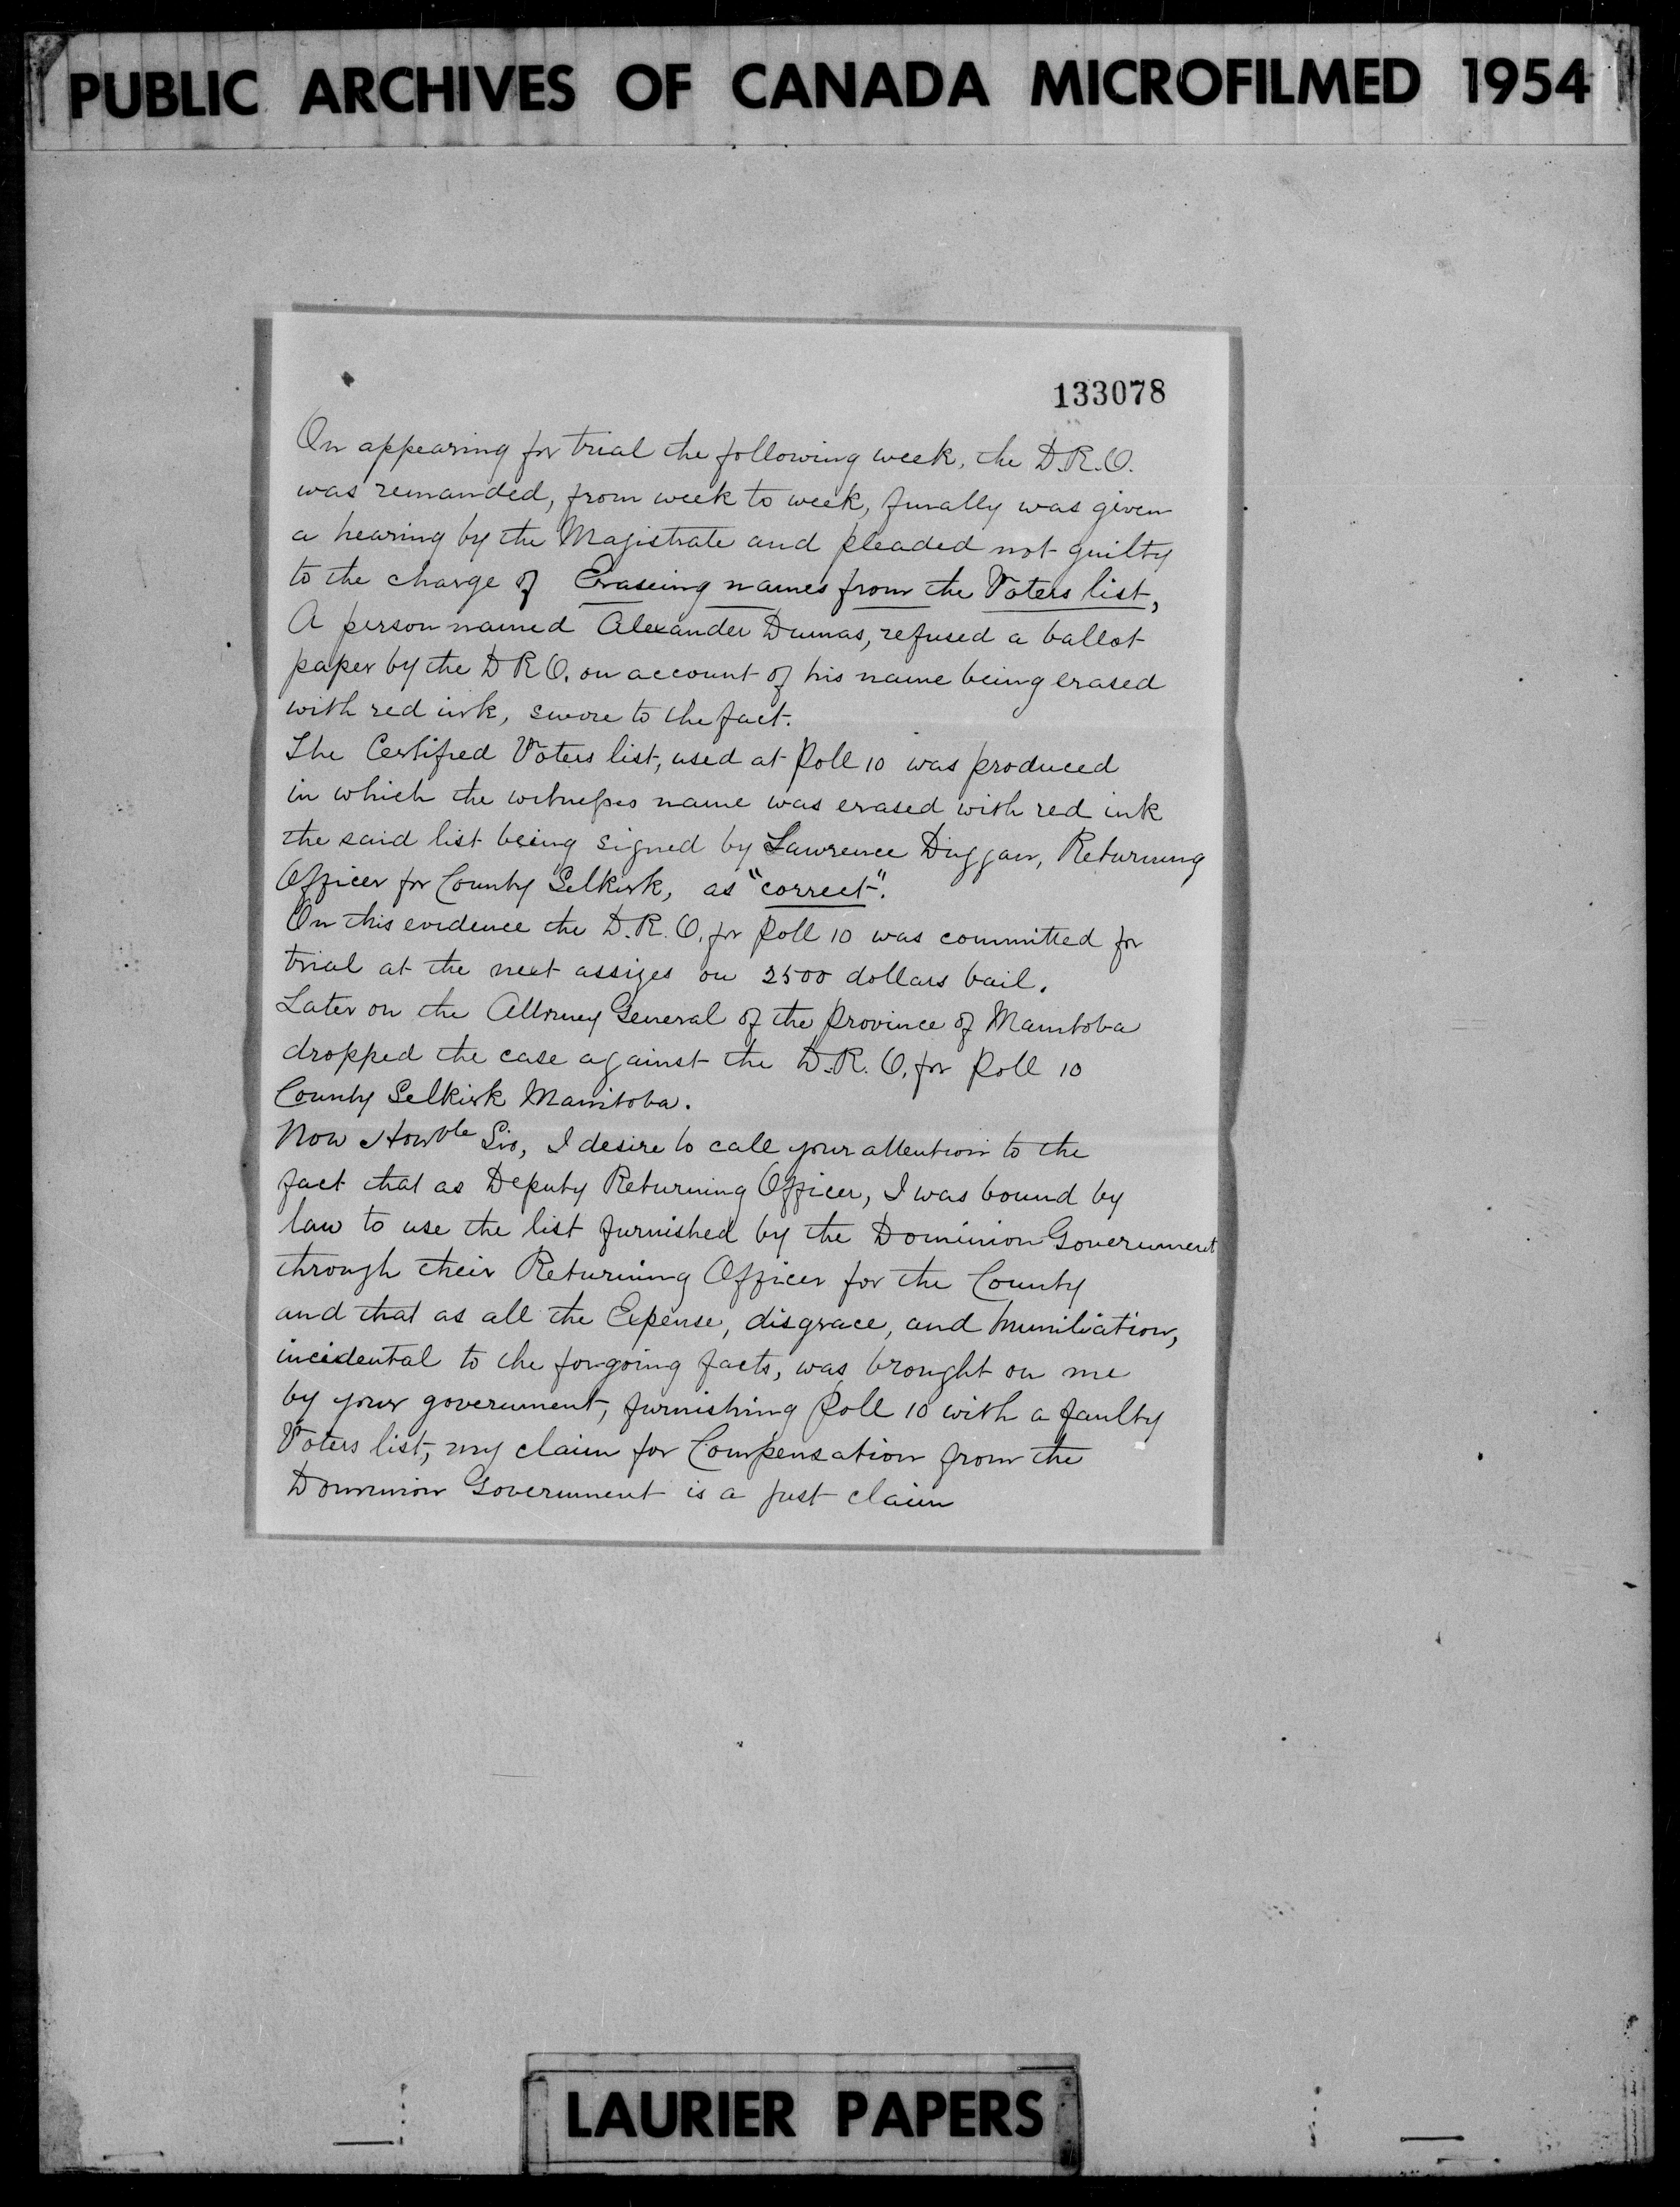 PUBLIC ARCHIVES OF CANADA MICROFILMED 1954
133078
On appearing for trial the following week, the D.R.O.
was remanded, from week to week, finally was given
a hearing by the Magistrate and pleaded not guilty
to the charge of Eraseing names from the Voters list,
A person named Alexander Dumas, refused a ballot
paper by the D R O. on account of his name being erased
with red ink, swore to the fact.
The Certified Voters list, used at Poll 10 was produced
in which the witness name was erased with red ink
the said list being signed by Lawrence Duggan, Returning
Officer for County Selkirk, as "correct".
On this evidence the D.R.O. for Poll 10 was committed for
trial at the next assizes on 2500 dollars bail.
Later on the Attorney General of the Province of Manitoba
dropped the case against the D.R.O. for Poll 10
County Selkirk Manitoba.
Now Honble Sir, I desire to call your attention to the
fact that as Deputy Returning Officer, I was bound by
law to use the list furnished by the Dominion Government
through their Returning Officer for the County
and that as all the Expense, disgrace, and humiliation,
incidental to the forgoing facts, was brought on me
by your government, furnishing Poll 10 with a faulty
Voters list, my claim for Compensation from the
Dominion Government is a just claim
LAURIER PAPERS